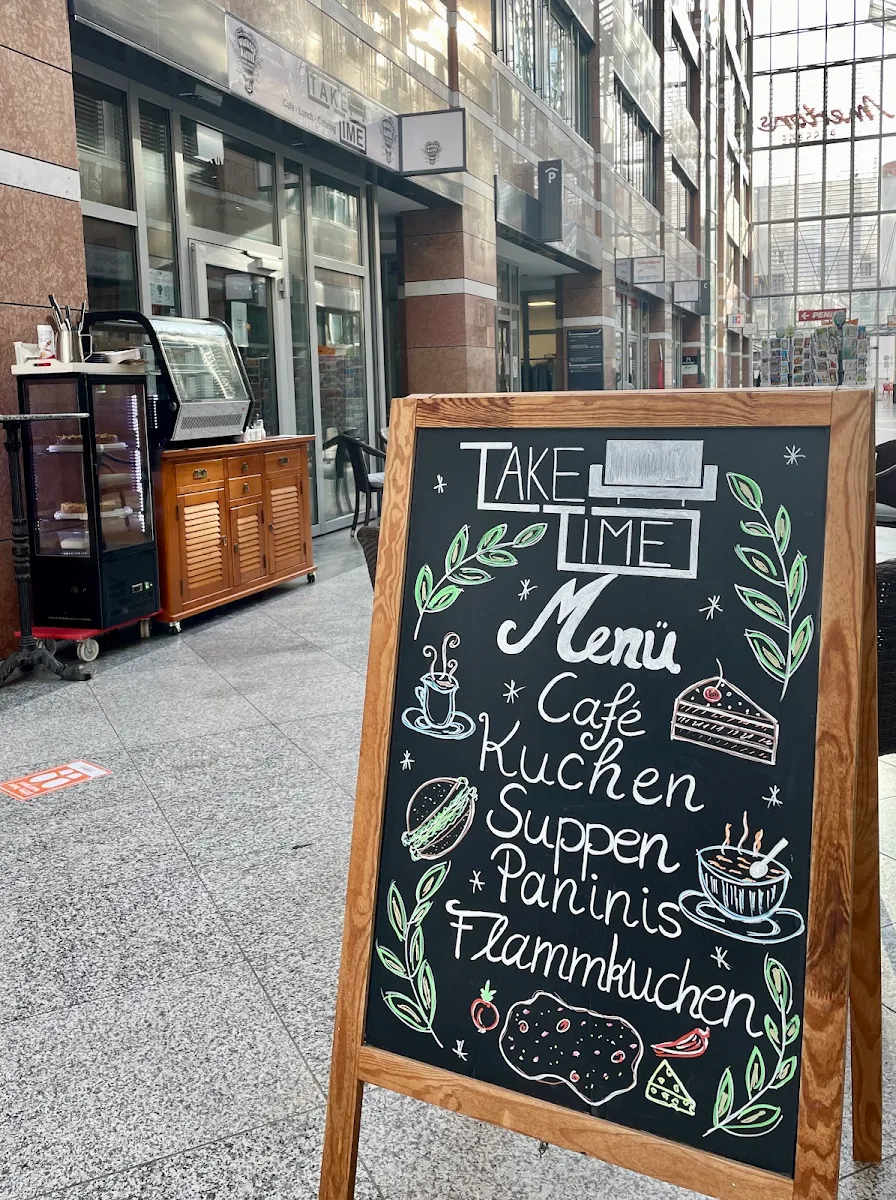 TAKE
TIME
Café · Lunch · Catering
P
mertons
PENNY
TAKE
TIME
Menü
Café
Kuchen
Suppen
Paninis
Flammkuchen